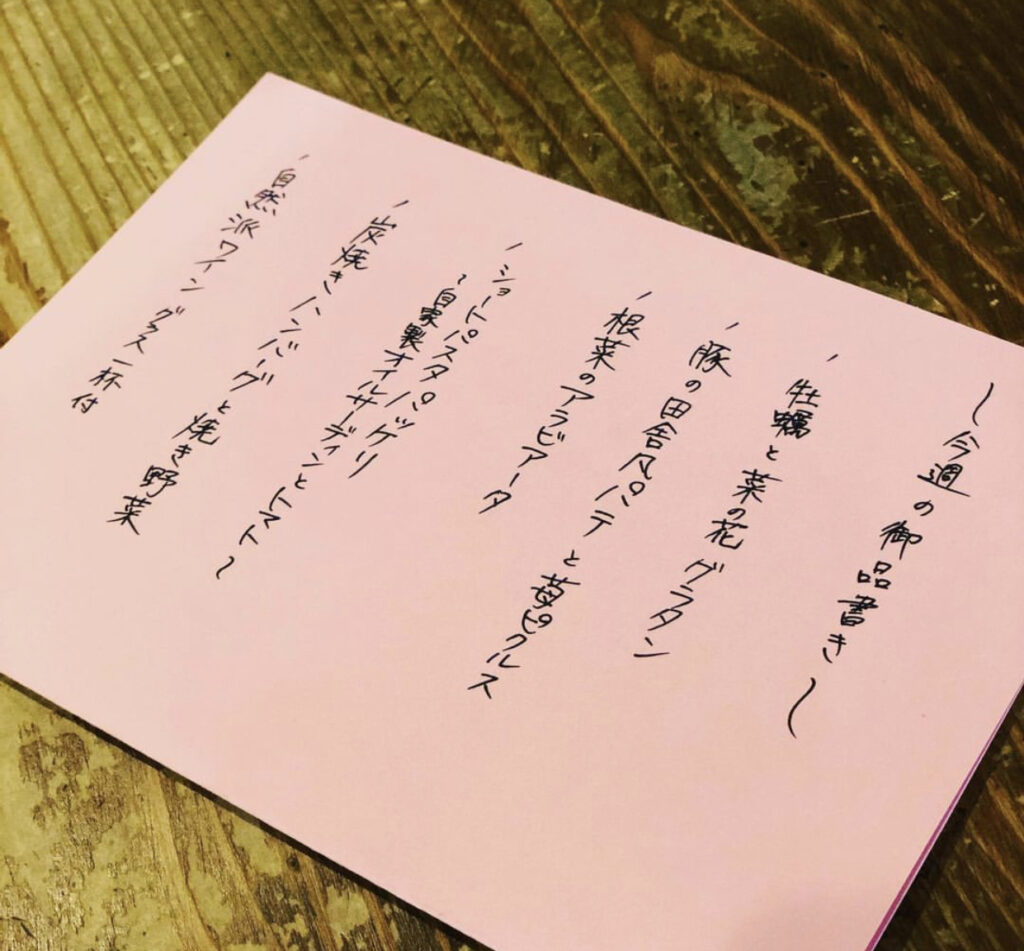 〜今週の御品書き〜
、牡蠣と菜の花グラタン
、豚の田舎風パテと苺ピクルス
、根菜のアラビアータ
、ショートパスタパッケリ
〜自家製オイルサーディンとトマト〜
、炭焼きハンバーグと焼き野菜
、自然派ワイングラス一杯付